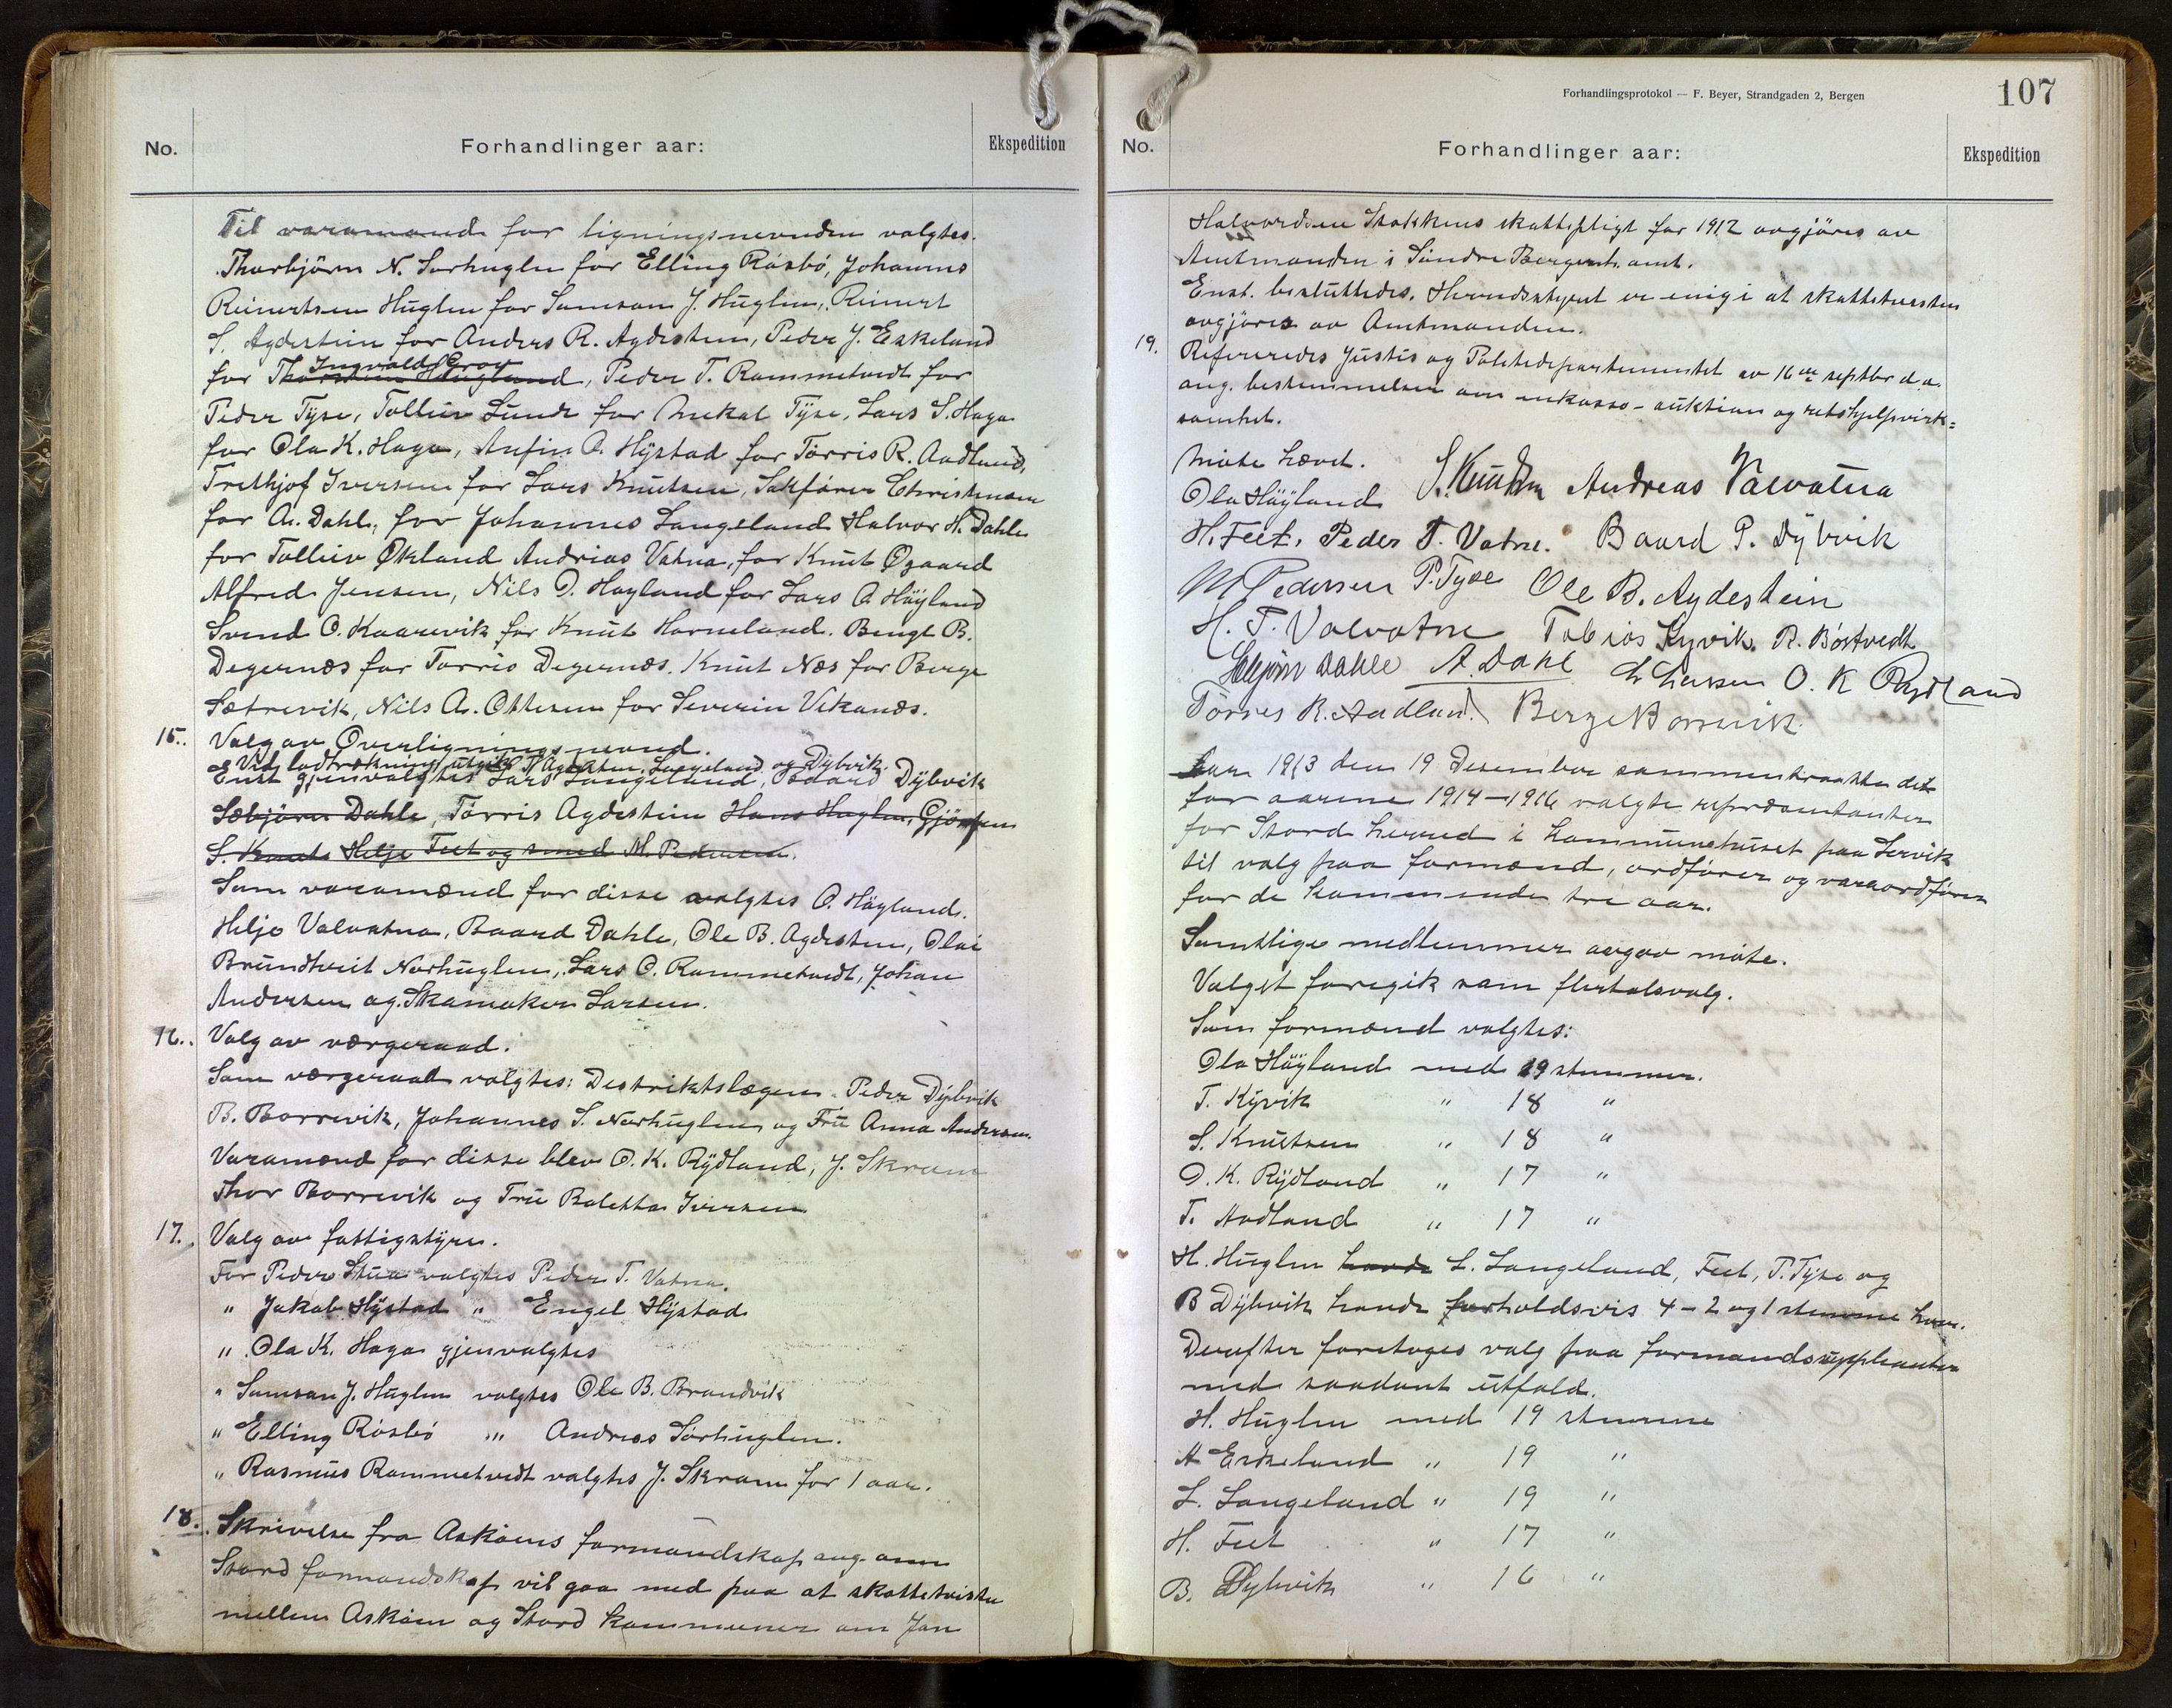 No.
Forhandlinger aar:
Ekspedition
Til varamænd for ligningsnevnden valgtes.
Thorbjörn N. Sørhuglen for Elling Røsbø, Johannes
Reinertsen Huglen for Samson J. Huglen, Reinert
S. Agdestein for Anders R. Agdestein, Peder J. Eskeland
Ingvald Grov
for Thorstein Haugland, Peder T. Rommetvedt for
Peder Tyse, Tolleiv Lunde for Mekal Tyse, Lars S. Haga
for Ola K. Haga, Anfin O. Hystad for Tørris R. Aadland,
Frethjof Iversen for Lars Knutsen, Sakfører Christensen
for A. Dahl, for Johannes Langeland Halvor H. Dahle
for Tolleiv Økland Andrias Vatna, for Knut Øgaard
Alfred Jensen, Nils O. Høyland for Lars O. Høyland
Svend O. Kaarevik for Knut Horneland. Bengt B.
Degernæs for Tørris Degernæs. Knut Næs for Berge
Sætrevik, Nils A. Ottesen for Severin Vikanæs.
15. Valg av Overligningsnevnd.
Ved lodtrækning utgik T. Agdesten, Langeland og Dybvik.
Enst gjenvalgtes Lars Langeland, Baard Dybvik
Sæbjörn Dahle, Tørris Agdestein Hans Huglen,
S. Knuts Helje Feet og smed M. Pedersen.
Som varamænd for disse valgtes O. Høyland.
Helje Valvatna, Baard Dahle, Ole B. Agdesten, Olai
Brundtveit Nørhuglen, Lars O. Rommetvedt, Johan
Andersen og Skomaker Larsen.
16. Valg av værgeraad.
Som værgeraad valgtes: Destriktslægen. Peder Dybvik
B. Borrevik, Johannes S. Nørhuglen og Fru Anna Andersen.
Varamænd for disse blev O. K. Rydland, J. Skram
Thor Borrevik og Fru Boletta Iversen.
17. Valg av fattigstyre.
For Peder Stua valgtes Peder T. Vatna.
" Jakob Hystad " Engel Hystad
" Ola K. Haga gjenvalgtes
" Samson J. Huglen valgtes Ole B. Brandvik
" Elling Røsbø " Andreas Sørhuglen.
" Rasmus Rommetvedt valgtes J. Skram for 1 aar.
18. Skrivelse fra Askøens formandskap ang. om
Stord formandskap vil gaa med paa at skattetvisten
mellem Askøen og Stord kommuner om Jan
Forhandlingsprotokol — F. Beyer, Strandgaden 2, Bergen
107
No.
Forhandlinger aar:
Ekspedition
Halvordsen Stokkens skattepligt for 1912 avgjöres av
Amtmanden i Söndre Bergenh. amt.
Enst. besluttedes. Herredsstyret er enig i at skattetvisten
avgjöres av Amtmanden.
19. Refereredes Justis og Politidepartementet av 16de septbr d.a.
ang. bestemmelsen om inkasso-auktion og retshjelpsvirk=
somhet.
Møte hævet.
Ola Höyland S. Knutsen Andreas Valvatna
H. Feet. Peder T. Vatne. Baard P. Dybvik
M Pedersen P. Tyse Ole B. Agdestein
H. T. Valvatne Tobias Kyvik. R. Böstvedt
Dahle A. Dahl O. K Rydland
Törres R. Aadland. Berge Borrevik.
Aar 1913 den 19 Desember sammentraatte det
for aarene 1914-1916 valgte repræsentanter
for Stord herred i kommunehuset paa Lervik
til valg paa formænd, ordfører og varaordfører
for de kommende tre aar.
Samtlige medlemmer avgav møte.
Valget foregik som flertalsvalg.
Som formænd valgtes:
Ola Höyland med 19 stemmer.
T. Kyvik " 18 "
S. Knutsen " 18 "
O. K. Rydland " 17 "
T. Aadland " 17 "
H. Huglen havde L. Langeland, Feet, P. Tyse og
B Dybvik havde forholdsvis 4-2 og 1 stemme hver.
Derefter foretoges valg paa formandsuppleanter
med saadant utfald.
H. Huglen med 19 stemme
A Eskeland " 19 "
L. Langeland " 19 "
H. Feet " 17 "
B. Dybvik " 16 "